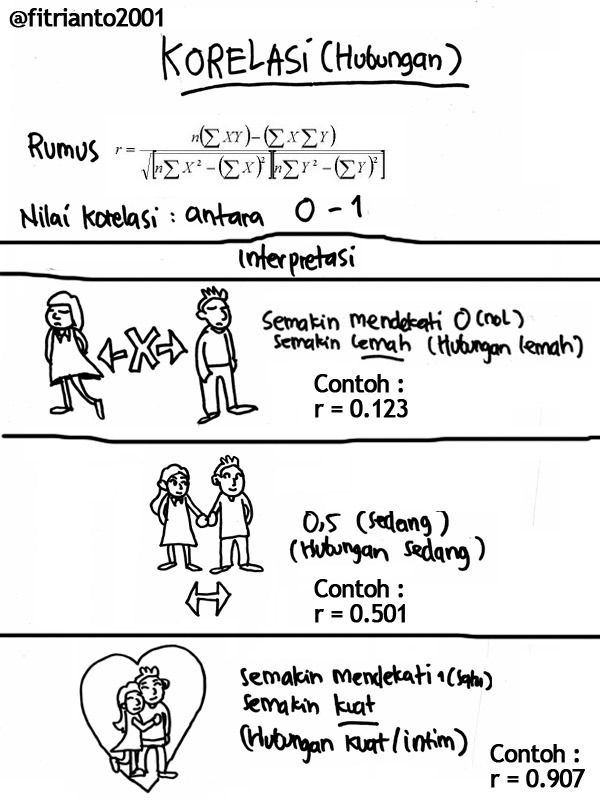 @fitrianto2001
KORELASI (Hubungan)
Rumus r = n(∑XY)−(∑X∑Y) / √[n∑X²−(∑X)²][n∑Y²−(∑Y)²]
Nilai korelasi : antara 0 - 1
Interpretasi
Semakin mendekati 0 (nol)
Semakin lemah (Hubungan lemah)
Contoh :
r = 0.123
0,5 (sedang)
(Hubungan sedang)
Contoh :
r = 0.501
Semakin mendekati 1 (satu)
Semakin kuat
(Hubungan kuat/intim)
Contoh :
r = 0.907